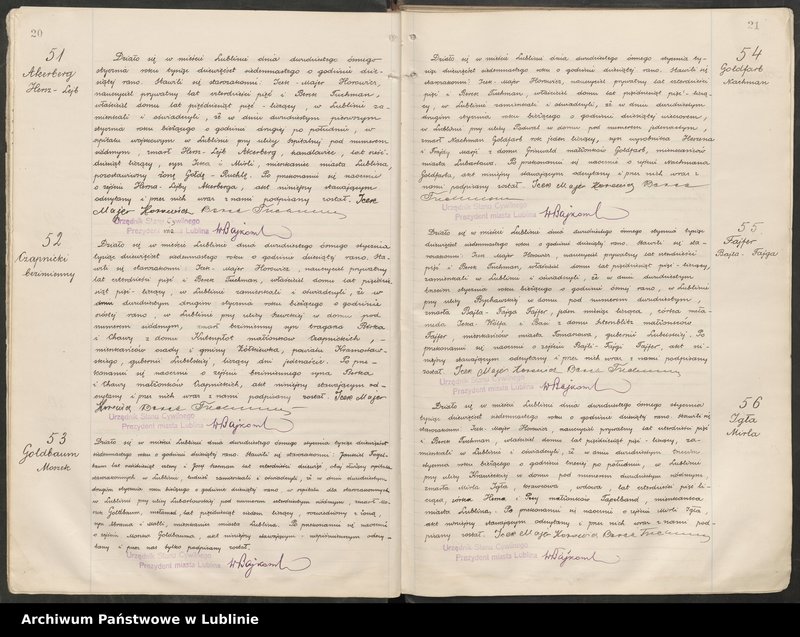 20
51
Akerberg
Hersz-Lejb
Działo się w mieście Lublinie dnia dwudziestego ósmego
stycznia roku tysiąc dziewięćset siedemnastego o godzinie dzie-
siątej rano. Stawili się starozakonni: Icek-Majer Horowicz,
nauczyciel prywatny lat czterdzieści pięć i Berek Fuchsman,
właściciel domu lat pięćdziesiąt pięć liczący, w Lublinie za-
mieszkali i oświadczyli, że w dniu dwudziestym pierwszym
stycznia roku bieżącego o godzinie drugiej po południu, w
szpitalu wojskowym w Lublinie przy ulicy szpitalnej pod numerem
siódmym, zmarł Hersz-Lejb Akerberg, handlowiec, lat
dziesiąt liczący, syn Icka i Mirli, mieszkaniec miasta Lublina,
pozostawiwszy żonę Gołdę-Ruchlę. Po przekonaniu się naocznie
o zejściu Hersza-Lejby Akerberga, akt niniejszy stawającym
odczytany i przez nich wraz z nami podpisany został. Icek
Majer Horowicz Berek Fuchsman
Urzędnik Stanu Cywilnego
Prezydent miasta Lublina WBajkowski
52
Czapnicki
bezimienny
Działo się w mieście Lublinie dnia dwudziestego ósmego stycznia
tysiąc dziewięćset siedemnastego roku o godzinie dziesiątej rano. Sta-
wili się starozakonni: Icek-Majer Horowicz, nauczyciel prywatny
lat czterdzieści pięć i Berek Fuchsman, właściciel domu lat pięćdzie-
siąt pięć liczący, w Lublinie zamieszkali i oświadczyli, że w
dniu dwudziestym drugim stycznia roku bieżącego o godzinie
szóstej rano, w Lublinie przy ulicy Szewckiej w domu pod
numerem siódmym, zmarł bezimienny syn tragarza Berka
i Chawy z domu małżonków Czapnickich,
mieszkańców osady i gminy Żółkiewka, powiatu Krasnostaw-
skiego, gubernii Lubelskiej, liczący dni jedenaście. Po prze-
konaniu się naocznie o zejściu bezimiennego syna Berka
i Chawy małżonków Czapnickich, akt niniejszy stawającym od-
czytany i przez nich wraz z nami podpisany został. Icek Majer
Horowicz Berek Fuchsman
Urzędnik Stanu Cywilnego
Prezydent miasta Lublina WBajkowski
53
Goldbaum
Moszek
Działo się w mieście Lublinie dnia dwudziestego ósmego stycznia tysiąc dziewięćset
siedemnastego roku o godzinie dziesiątej rano. Stawili się starozakonni: Jankiel
lat i Josef lat czterdzieści dziewięć, obaj służący szpitala
starozakonnych w Lublinie, tudzież zamieszkali i oświadczyli, iż w dniu dwudziestym
drugim stycznia roku bieżącego o godzinie dziesiątej rano, w szpitalu dla starozakonnych
w Lublinie przy ulicy Lubartowskiej pod numerem czterdziestym siódmym, zmarł Mo-
szek Goldbaum, lat pięćdziesiąt siedem liczący, rozwiedziony z żoną,
syn i mieszkaniec miasta Lublina. Po przekonaniu się naocznie
o zejściu Moszka Goldbauma, akt niniejszy stawającym niepiśmiennym odczy-
tany i przez nas tylko podpisany został.
Urzędnik Stanu Cywilnego
Prezydent miasta Lublina WBajkowski
21
54
Goldfarb
Nachman
Działo się w mieście Lublinie dnia dwudziestego ósmego stycznia ty-
siąc dziewięćset siedemnastego roku o godzinie dziesiątej rano. Stawili się
starozakonni: Icek-Majer Horowicz, nauczyciel prywatny lat czterdzieści
pięć i Berek Fuchsman, właściciel domu lat pięćdziesiąt pięć liczą-
cy, w Lublinie zamieszkali i oświadczyli, że w dniu dwudziestym
drugim stycznia roku bieżącego o godzinie dziesiątej wieczorem,
w Lublinie przy ulicy Podwal w domu pod numerem jedenastym,
zmarł Nachman Goldfarb rok jeden liczący, syn wyrobnika Herszna
i Fajdy z domu małżonków Goldfarb, mieszkańców
miasta Lubartowa. Po przekonaniu się naocznie o zejściu Nachmana
Goldfarba, akt niniejszy stawającym odczytany i przez nich wraz z
nami podpisany został. Icek Majer Horowicz Berek
Fuchsman
Urzędnik Stanu Cywilnego
Prezydent miasta Lublina WBajkowski
55
Fajfer
Bajla-Fajga
Działo się w mieście Lublinie dnia dwudziestego ósmego stycznia tysiąc
dziewięćset siedemnastego roku o godzinie dziesiątej rano. Stawili się sta-
rozakonni: Icek Majer Horowicz, nauczyciel prywatny lat czterdzieści
pięć i Berek Fuchsman, właściciel domu lat pięćdziesiąt pięć liczący,
zamieszkali w Lublinie i oświadczyli, że w dniu dwudziestym
trzecim stycznia roku bieżącego o godzinie ósmej rano, w Lublinie
przy ulicy Bychawskiej w domu pod numerem dwudziestym,
zmarła Bajla-Fajga Fajfer, jeden miesiąc licząca, córka
Icka-Wolfa i z domu małżonków
Fajfer mieszkańców miasta Tomaszowa, gubernii Lubelskiej. Po
przekonaniu się naocznie o zejściu Bajli-Fajgi Fajfer, akt ni-
niejszy stawającym odczytany i przez nich wraz z nami podpisany
został. Icek Majer Horowicz Berek Fuchsman
Urzędnik Stanu Cywilnego
Prezydent miasta Lublina WBajkowski
56
Igła
Mirla
Działo się w mieście Lublinie dnia dwudziestego ósmego stycznia
tysiąc dziewięćset siedemnastego roku o godzinie dziesiątej rano. Stawili się
starozakonni: Icek-Majer Horowicz, nauczyciel prywatny lat czterdzieści pięć
i Berek Fuchsman, właściciel domu lat pięćdziesiąt pięć liczący, za-
mieszkali w Lublinie i oświadczyli, że w dniu dwudziestym trzecim
stycznia roku bieżącego o godzinie trzeciej po południu, w Lublinie
przy ulicy Krawieckiej w domu pod numerem dwudziestym siódmym,
zmarła Mirla Igła krawcowa wdowa, lat czterdzieści pięć li-
cząca, córka i małżonków mieszkanka
miasta Lublina. Po przekonaniu się naocznie o zejściu Mirli Igła,
akt niniejszy stawającym odczytany i przez nich wraz z nami pod-
pisany został. Icek Majer Horowicz Berek Fuchsman
Urzędnik Stanu Cywilnego
Prezydent miasta Lublina WBajkowski
Archiwum Państwowe w Lublinie